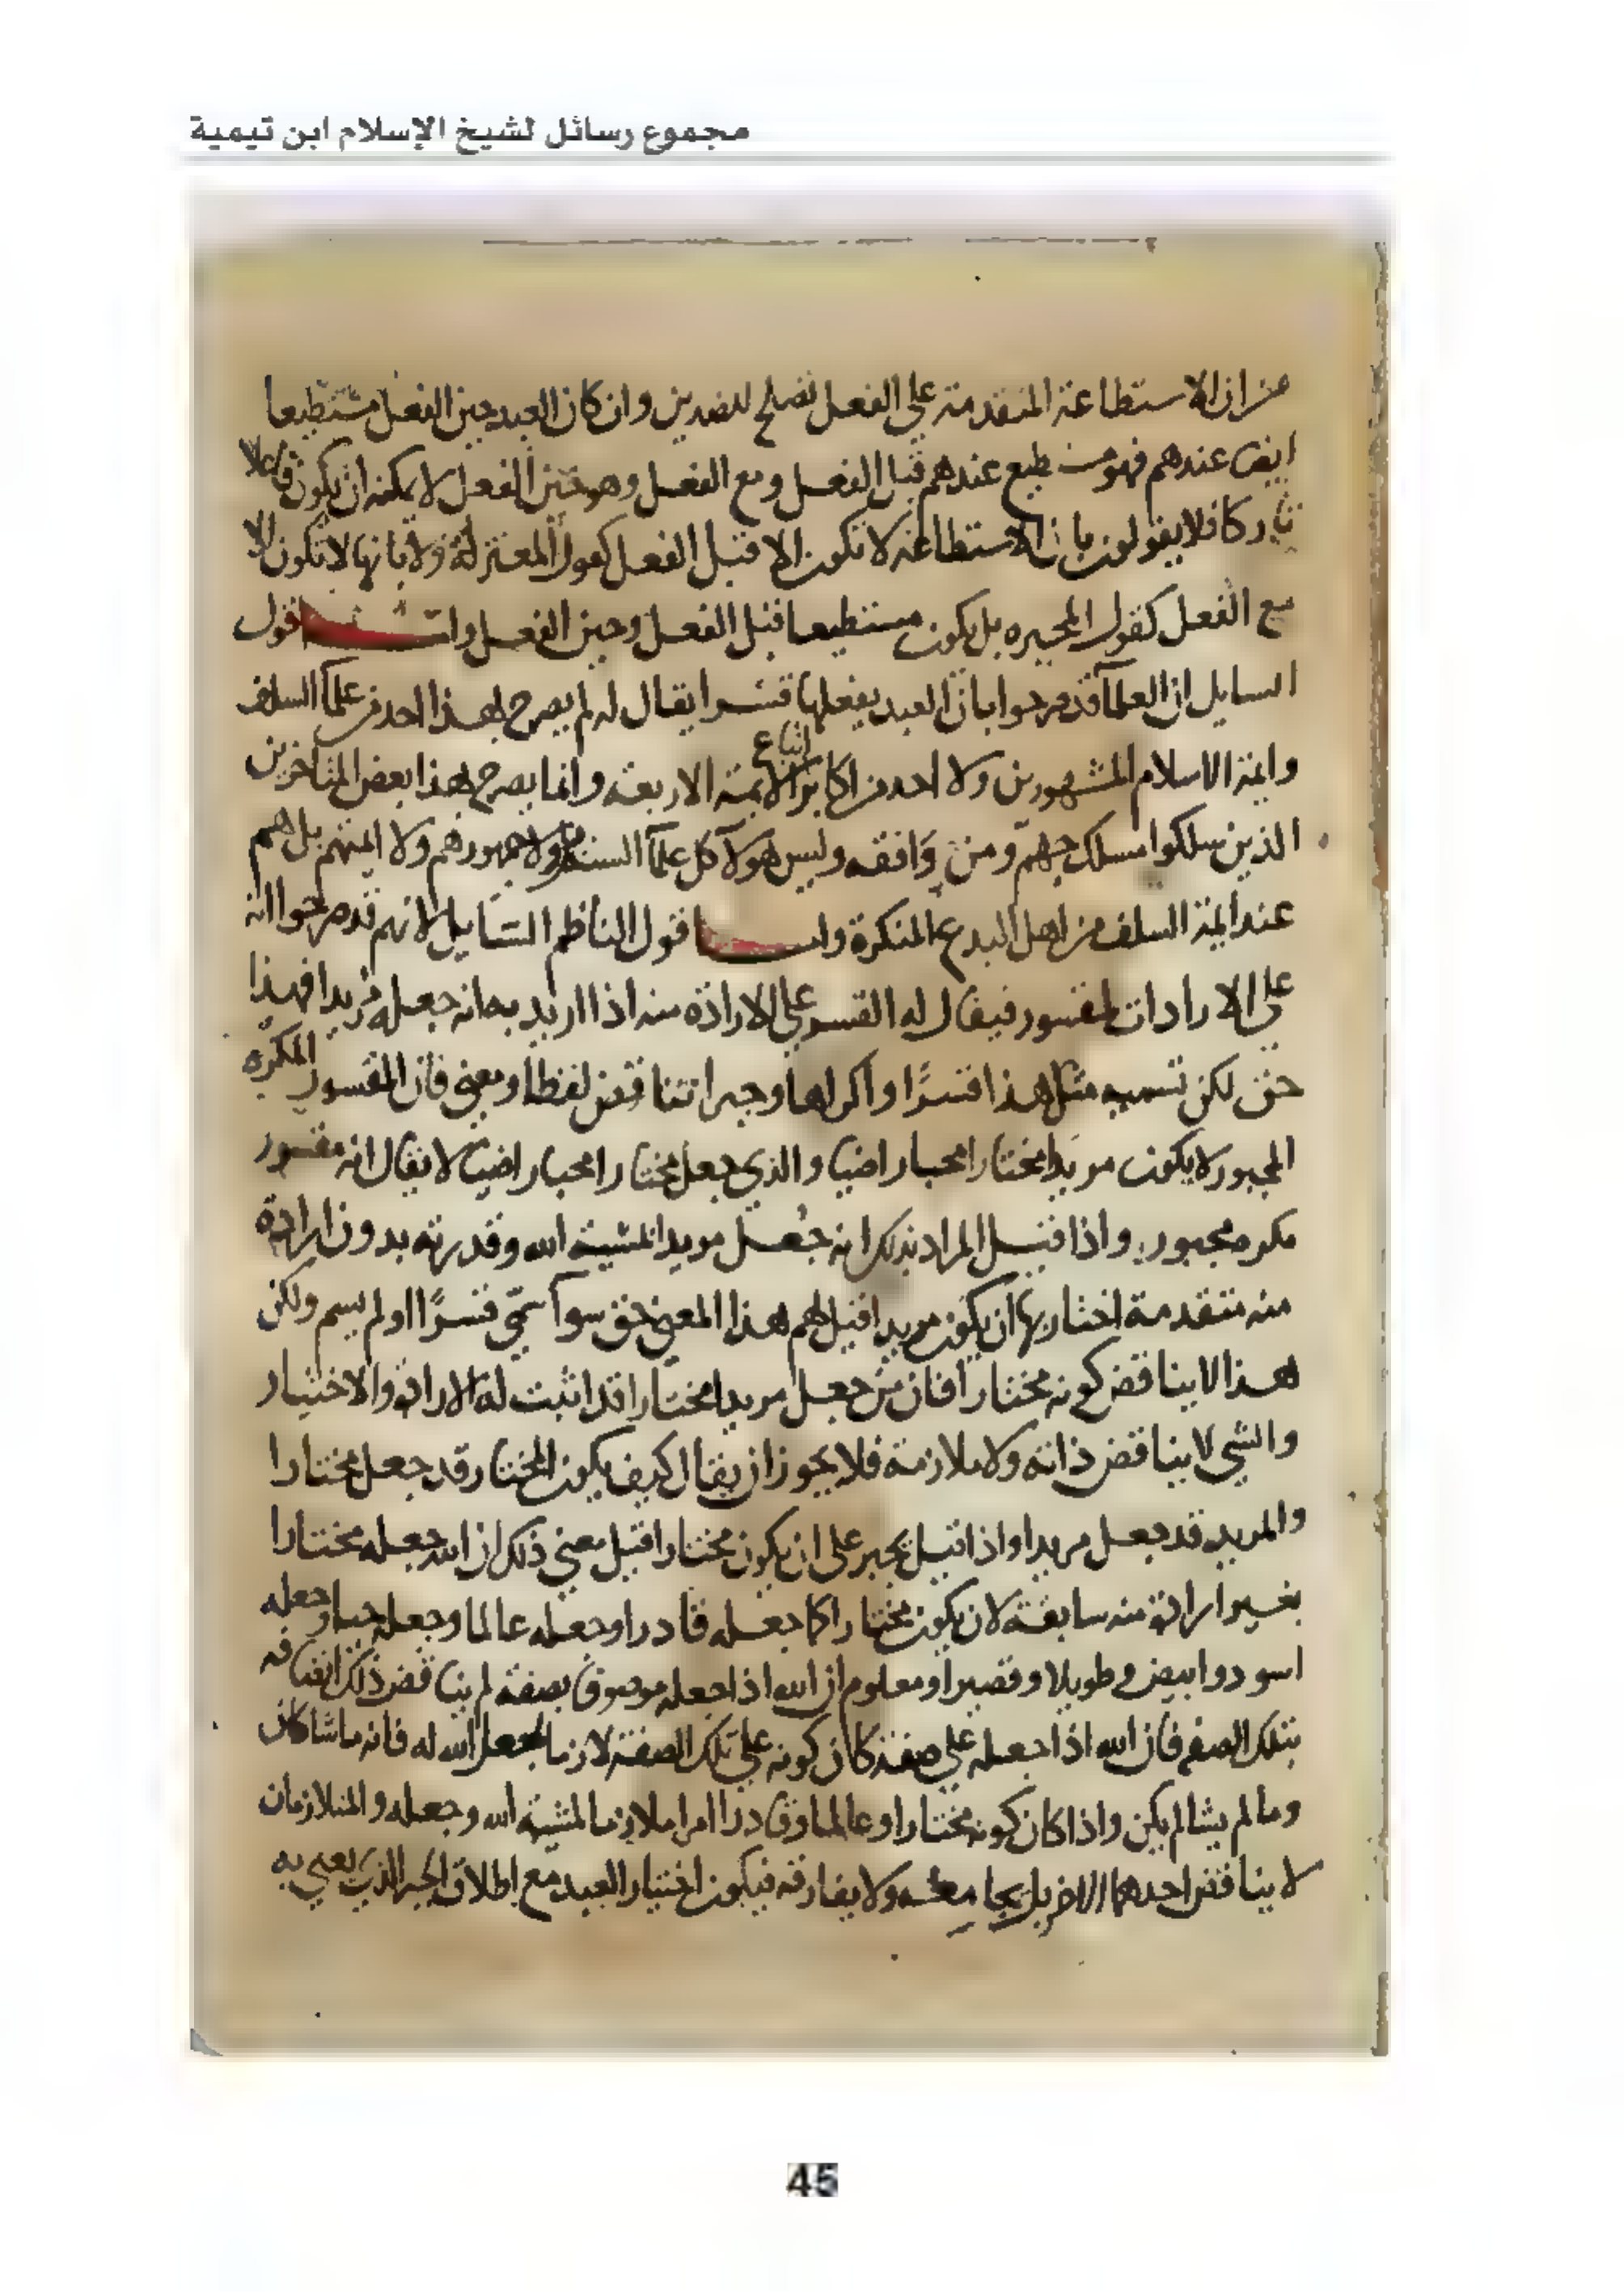 مجموع رسائل لشيخ الإسلام ابن تيمية
من ان الاستطاعة المتقدمة على الفعل تصلح للضدين وان كان العبد حين الفعل مستطيعا
ايضا عندهم فهو مستطيع عندهم قبل الفعل ومع الفعل وهو حين الفعل لا يمكنه ان يكون فاعلا
تاركا فلا يقولون بان الاستطاعة لا تكون الا قبل الفعل كقول المعتزلة ولا بانها لا تكون الا
مع الفعل كقول المجبره بل يكون مستطيعا قبل الفعل وحين الفعل واما قول
السايل ان العلما قد صرحوا بان العبد يفعلها قسرا يقال له لم يصرح بهذا احد من علما السلف
وايمة الاسلام المشهورين ولا احد من اكابر اتباع الايمة الاربعة وانما يصرح بهذا بعض المتاخرين
الذين سلكوا مسلك جهم ومن وافقه وليس هولا كل علما السنة ولا جمهورهم ولا ايمتهم بل هم
عند ايمة السلف من اهل البدع المنكرة واما قول الناظم السايل لانهم قد صرحوا انه
على الارادات لمقسور فيقال له القسر على الارادة منه اذا اريد به انه جعله مريدا فهذا
حق لكن تسميه مثل هذا قسرًا واكراها وجبرا تناقض لفظا ومعنى فان المقسور المكره
المجبور لا يكون مريدا مختارا محبا راضيا والذي جعل مختارا محبا راضيا لا يقال انه مقسور
مكره مجبور واذا قيل المراد بذلك انه جُعل مريدا بمشيئة الله وقدرته بدون ارادة
منه متقدمة اختار بها ان يكون مريدا قيل لهم هذا المعنى حق سوآ سمى قسرًا او لم يسم ولكن
هذا لا يناقض كونه مختارا فان من جعل مريدا مختارا قد اثبت له الارادة والاختيار
والشي لا يناقض ذاته ولا ملازمة فلا يجوز ان يقال كيف يكون المختار قد جعل مختارا
والمريد قد جعل مريدا واذا قيل يجبر على ان يكون مختارا قيل معنى ذلك ان الله جعله مختارا
بغير ارادة منه سابقة لان يكون مختارا كما جعله قادرا وجعله عالما وجعله حيا وجعله
اسود وابيض وطويلا وقصيرا ومعلوم ان الله اذا جعله موصوفا بصفة لم يناقض ذلك اتصافه
بتلك الصفه فان الله اذا جعله على صفة كان كونه على تلك الصفة لازما لجعل الله له فانه ما شا كان
وما لم يشا لم يكن واذا كان كونه مختارا وعالما وقادرا امرا ملازما لمشيئة الله وجعله والمتلازمان
لا يناقض احدهما الاخر بل يجامعه ولا يفارقه فيكون اختيار العبد مع اطلاق الجبر الذي يعني به
45